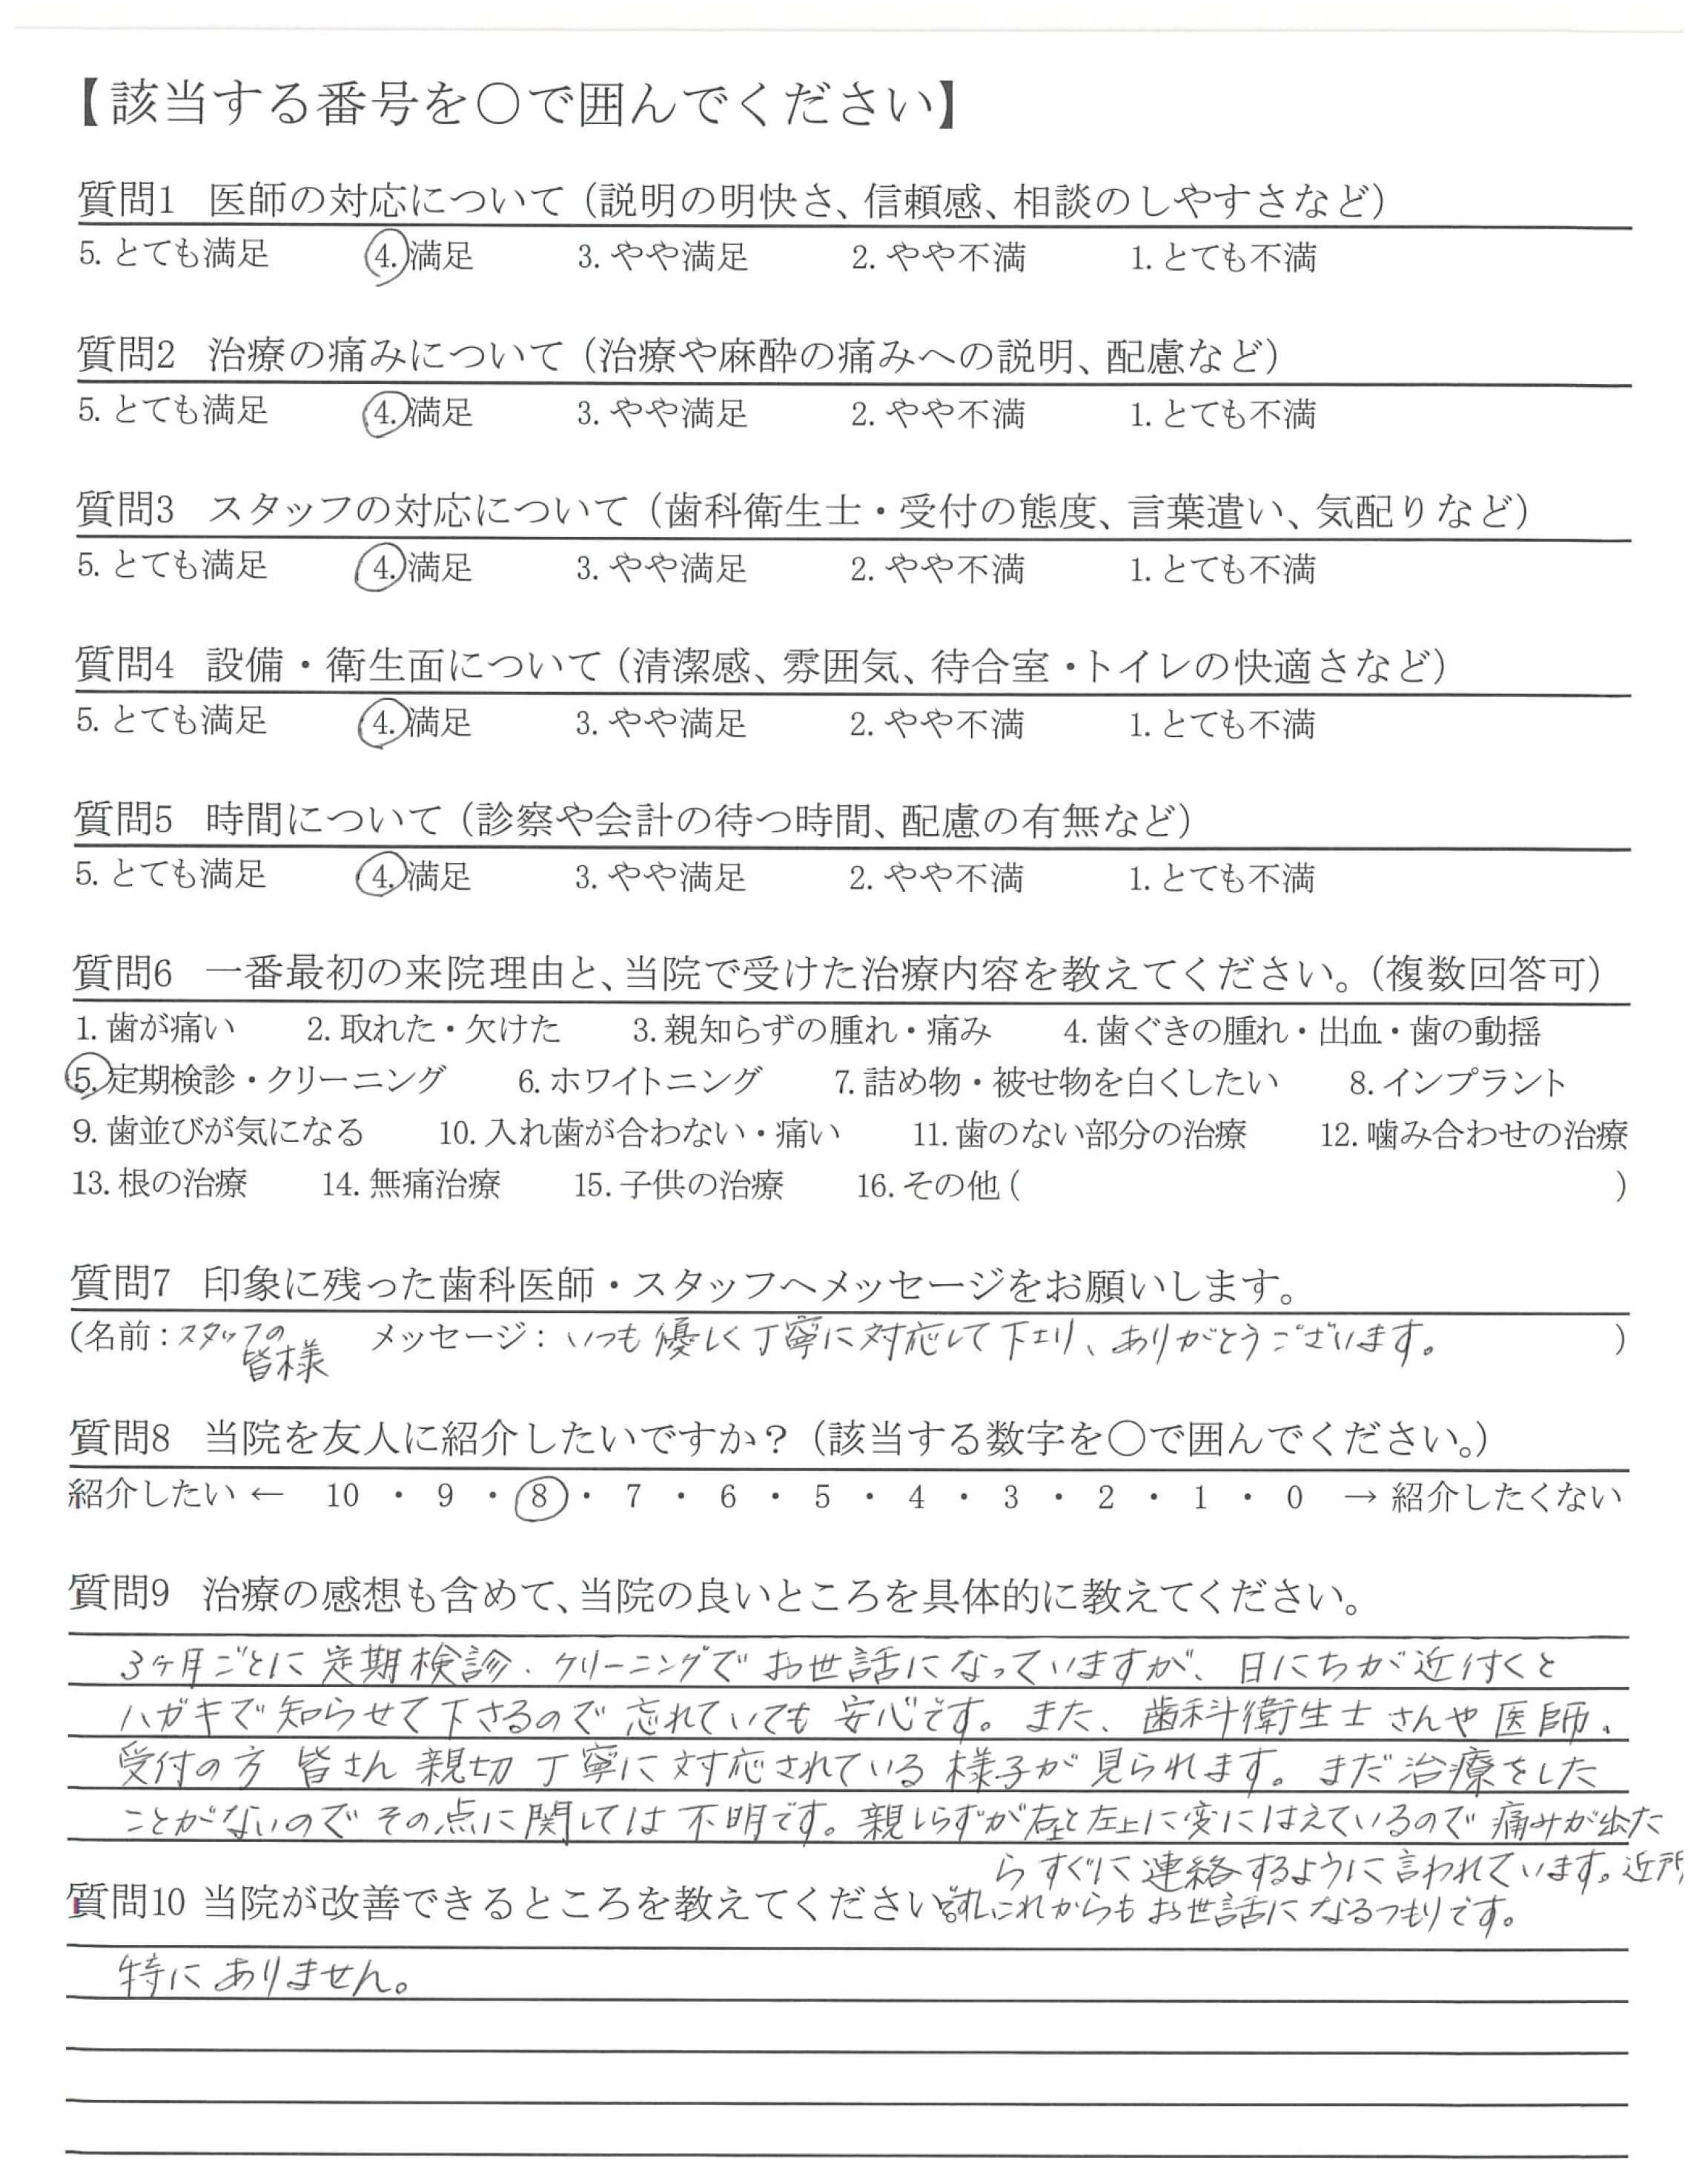 【該当する番号を○で囲んでください】
質問1 医師の対応について（説明の明快さ、信頼感、相談のしやすさなど）
5. とても満足 4. 満足 3. やや満足 2. やや不満 1. とても不満
質問2 治療の痛みについて（治療や麻酔の痛みへの説明、配慮など）
5. とても満足 4. 満足 3. やや満足 2. やや不満 1. とても不満
質問3 スタッフの対応について（歯科衛生士・受付の態度、言葉遣い、気配りなど）
5. とても満足 4. 満足 3. やや満足 2. やや不満 1. とても不満
質問4 設備・衛生面について（清潔感、雰囲気、待合室・トイレの快適さなど）
5. とても満足 4. 満足 3. やや満足 2. やや不満 1. とても不満
質問5 時間について（診察や会計の待つ時間、配慮の有無など）
5. とても満足 4. 満足 3. やや満足 2. やや不満 1. とても不満
質問6 一番最初の来院理由と、当院で受けた治療内容を教えてください。（複数回答可）
1. 歯が痛い 2. 取れた・欠けた 3. 親知らずの腫れ・痛み 4. 歯ぐきの腫れ・出血・歯の動揺
5. 定期検診・クリーニング 6. ホワイトニング 7. 詰め物・被せ物を白くしたい 8. インプラント
9. 歯並びが気になる 10. 入れ歯が合わない・痛い 11. 歯のない部分の治療 12. 噛み合わせの治療
13. 根の治療 14. 無痛治療 15. 子供の治療 16. その他 ( )
質問7 印象に残った歯科医師・スタッフへメッセージをお願いします。
(名前：スタッフの皆様 メッセージ：いつも優しく丁寧に対応して下さり、ありがとうございます。 )
質問8 当院を友人に紹介したいですか？（該当する数字を○で囲んでください。）
紹介したい ← 10 ・ 9 ・ 8 ・ 7 ・ 6 ・ 5 ・ 4 ・ 3 ・ 2 ・ 1 ・ 0 → 紹介したくない
質問9 治療の感想も含めて、当院の良いところを具体的に教えてください。
3ヶ月ごとに定期検診、クリーニングでお世話になっていますが、日にちが近付くと
ハガキで知らせて下さるので忘れていても安心です。また、歯科衛生士さんや医師、
受付の方皆さん親切丁寧に対応されている様子が見られます。まだ治療をした
ことがないのでその点に関しては不明です。親しらずが右と左上に変にはえているので痛みが出た
らすぐに連絡するように言われています。近所
質問10 当院が改善できるところを教えてください。
ですしこれからもお世話になるつもりです。
特にありません。